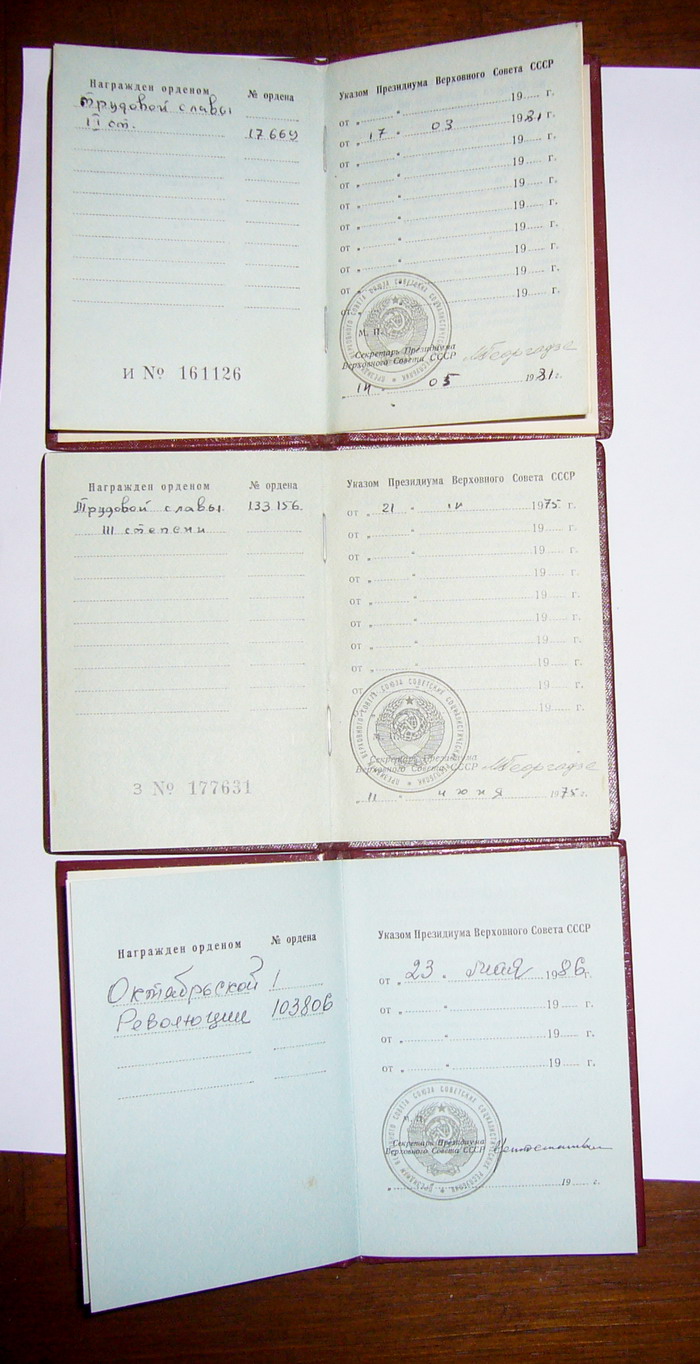 Награжден орденом № ордена
Трудовой славы
II ст. 17669
И № 161126
Указом Президиума Верховного Совета СССР
от „ “ 19 г.
от „ 17 “ 03 1981 г.
от „ “ 19 г.
от „ “ 19 г.
от „ “ 19 г.
от „ “ 19 г.
от „ “ 19 г.
от „ “ 19 г.
от „ “ 19 г.
от „ “ 19 г.
М. П.
Секретарь Президиума
Верховного Совета СССР МГеоргадзе
05 1981 г.
Награжден орденом № ордена
Трудовой славы 133156.
III степени
З № 177631
Указом Президиума Верховного Совета СССР
от „ 21 “ 1975 г.
от „ “ 19 г.
от „ “ 19 г.
от „ “ 19 г.
от „ “ 19 г.
от „ “ 19 г.
от „ “ 19 г.
от „ “ 19 г.
от „ “ 19 г.
19 г.
Секретарь Президиума
Верховного Совета СССР МГеоргадзе
„ 11 “ июня 1975 г.
Награжден орденом № ордена
Октябрьской
Революции 103806
Указом Президиума Верховного Совета СССР
от „ 23 “ мая 1986 г.
от „ “ 19 г.
от „ “ 19 г.
от „ “ 19 г.
М. П.
Секретарь Президиума
Верховного Совета СССР
„ “ 19 г.